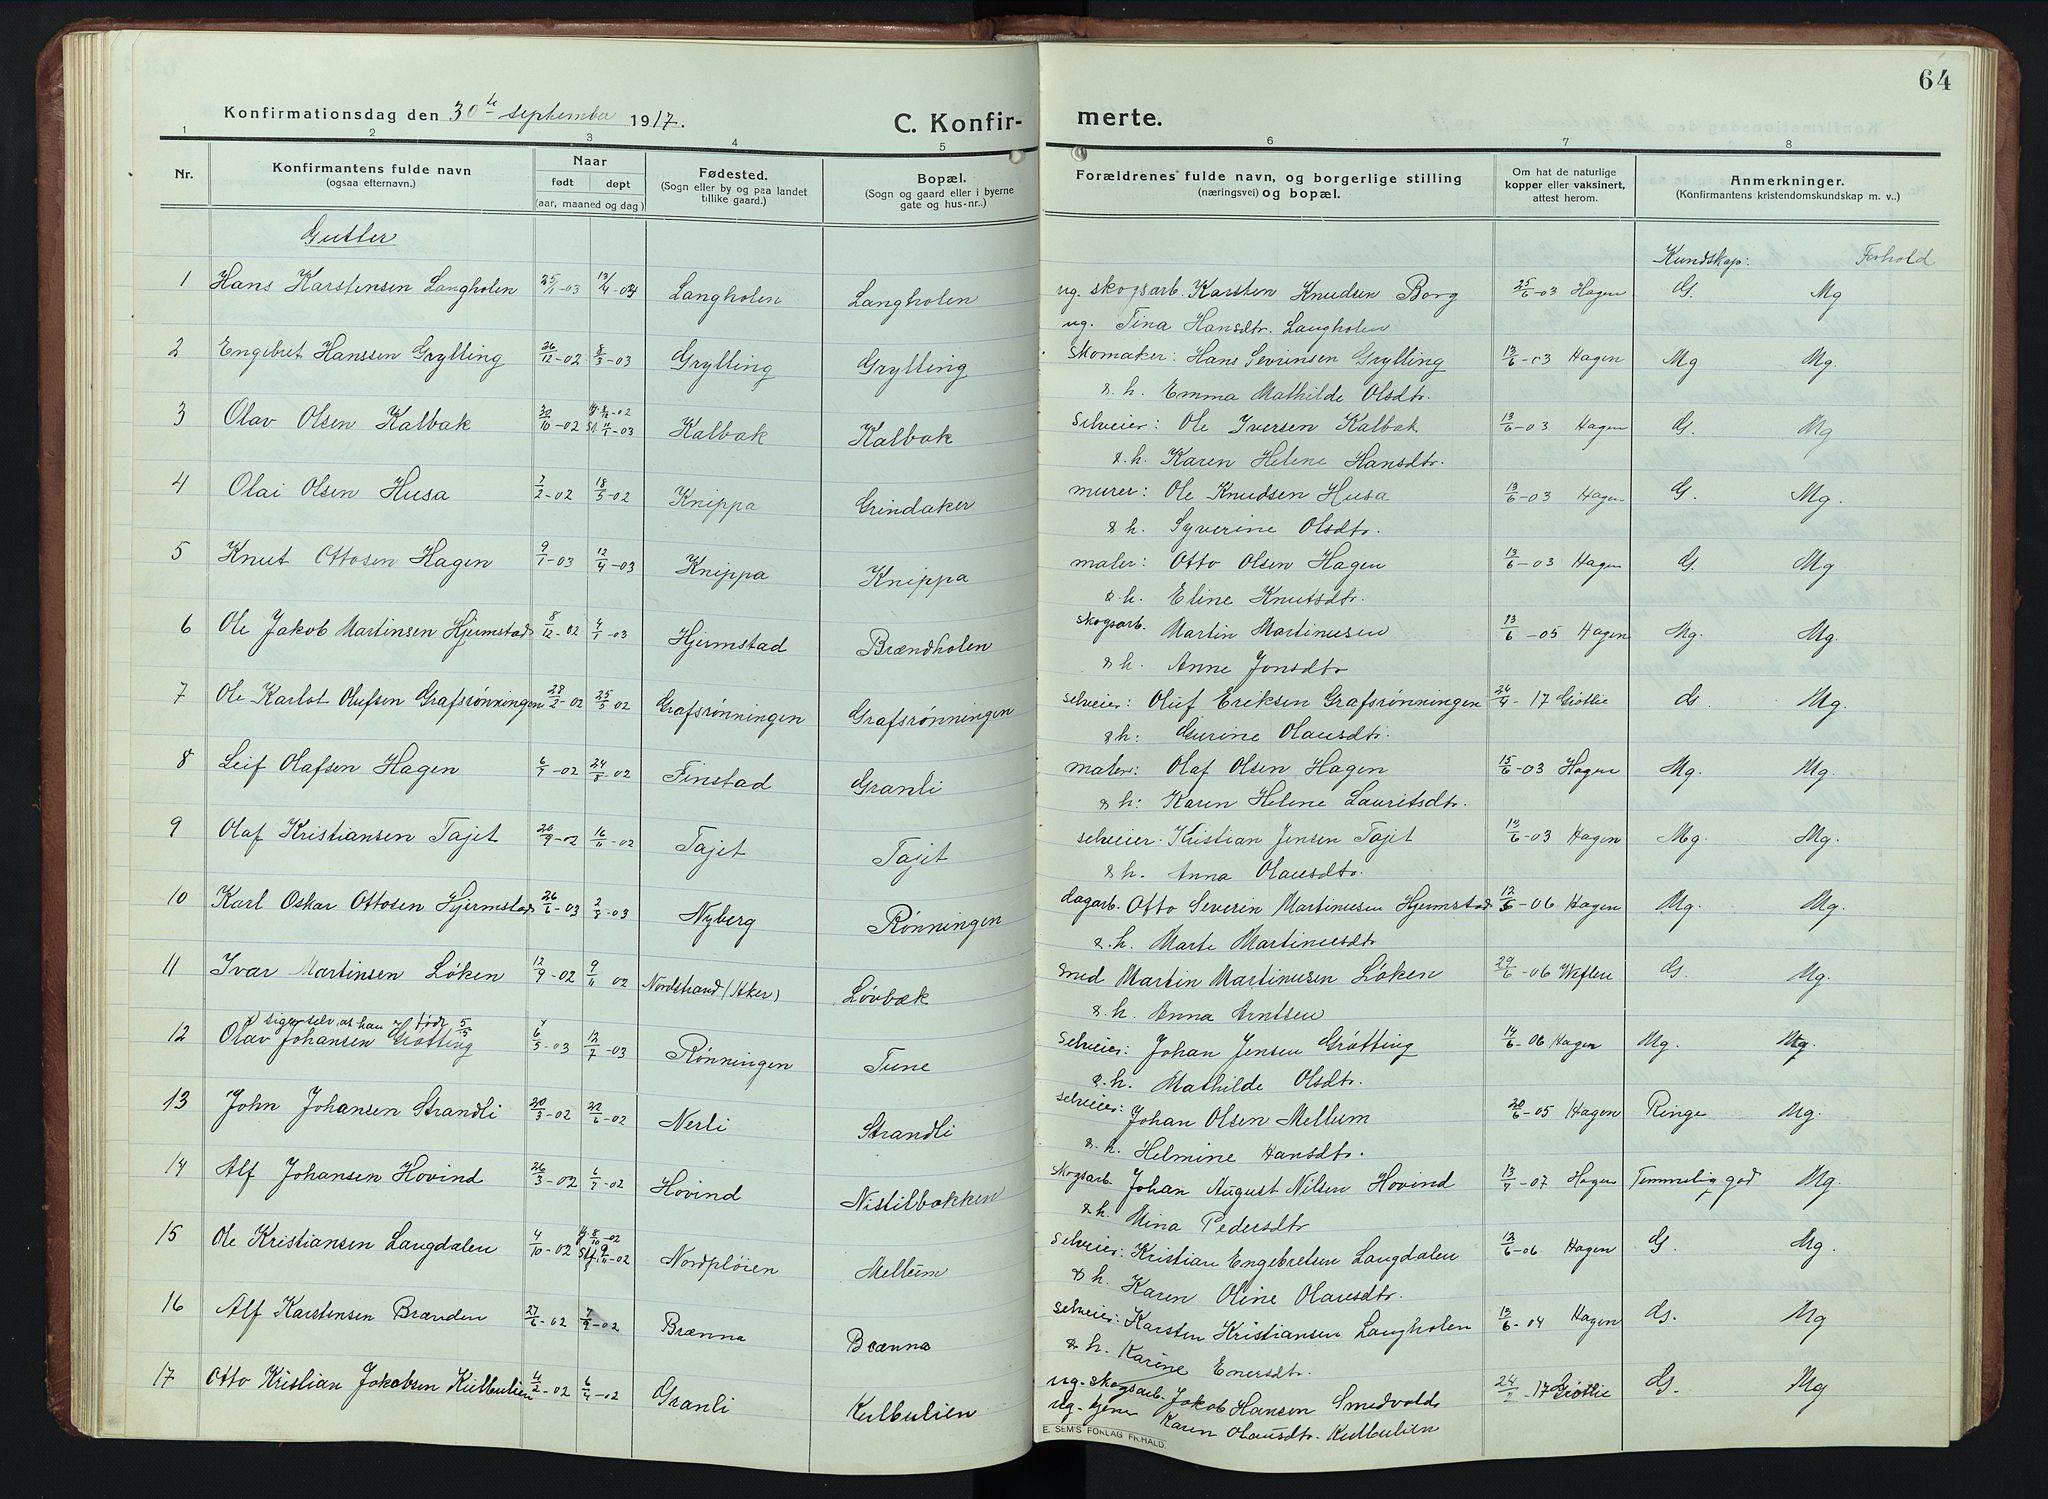 64
Konfirmationsdag den 30te september 1917.
C. Konfir-
merte.
1 2 3 4 5 6 7 8
Nr. Konfirmantens fulde navn (ogsaa efternavn.) Naar født døpt (aar, maaned og dag) Fødested. (Sogn eller by og paa landet tillike gaard.) Bopæl. (Sogn og gaard eller i byerne gate og hus-nr.) Forældrenes fulde navn, og borgerlige stilling (næringsvei) og bopæl. Om hat de naturlige kopper eller vaksinert, attest herom. Anmerkninger. (Konfirmantens kristendomskundskap m. v.)
Gutter Kundskap: Forhold
1 Hans Karstensen Langholen 25/1-03 13/4-03 Langholen Langholen ug. skogsarb. Karsten Knudsen Borg 25/6-03 Hagen G. Mg
ug. Tina Hansdtr. Langholen
2 Engebret Hanssen Grylling 26/12-02 8/3-03 Grylling Grylling Skomaker: Hans Sevrinsen Grylling 13/6-03 Hagen Mg Mg.
& h. Emma Mathilde Olsdtr.
3 Olav Olsen Kalbak 30/10-02 Kalbak Kalbak Selveier: Ole Iversen Kalbak 13/6-03 Hagen G. Mg
& h. Karen Helene Hansdtr.
4 Olai Olsen Husa 7/2-02 18/5-02 Knippa Grindaker murer: Ole Knudsen Husa 13/6-03 Hagen G. Mg.
& h. Syverine Olsdtr.
5 Knut Ottosen Hagen 9/1-03 12/4-03 Knippa Knippa maler: Otto Olsen Hagen 13/6-03 Hagen G. Mg
& h. Eline Knutsdtr.
6 Ole Jakob Martinsen Hjermstad 8/12-02 4/1-03 Hjermstad Brændholen Skogsarb. Martin Martinusen 13/6-05 Hagen Mg. Mg.
& h. Anne Jonsdtr
7 Ole Karlot Olufsen Grafsrønningen 28/2-02 25/5 02 Grafsrønningen Grafsrønningen selveier: Oluf Eriksen Grafsrønningen 24/4-17 Grøttie G. Mg.
& h: Gurine Olausdtr.
8 Leif Olafsen Hagen 6/7-02 24/8-02 Finstad Granli maler: Olaf Olsen Hagen 15/6-03 Hagen Mg. Mg.
& h: Karen Helene Lauritsdtr.
9 Olaf Kristiansen Tajet 20/9-02 16/11-02 Tajet Tajet selveier. Kristian Jensen Tajet 13/6-03 Hagen Mg. Mg.
& h. Anna Olausdtr.
10 Karl Oskar Ottosen Hjermstad 26/6-03 2/8-03 Nyberg Rønningen dagarb. Otto Severin Martinusen Hjermstad 12/6-06 Hagen Mg. Mg.
& h. Marte Martinusdtr
11 Ivar Martinsen Løken 12/9-02 9/11 02 Nordstrand (Aker) Løvbæk smed Martin Martinusen Løken 29/6-06 G. Mg.
& h. Anna Arntsen
siger selv at han er født 5/5
12 Olav Johansen Grøtting 6/5-03 12/7-03 Rønningen Tune Selveier: Johan Jensen Grøtting 14/6-06 Hagen Mg. Mg.
& h. Mathilde Olsdtr.
13 John Johansen Strandli 20/3-02 22/6-02 Nerli Strandli selveier: Johan Olsen Mellum 20/6-05 Hagen Ringe Mg.
& h. Helmine Hansdtr.
14 Alf Johansen Hovind 26/3-02 6/7-02 Hovind Nistilbakken Skogsarb. Johan August Nilsen Hovind 13/7-07 Hagen Temmelig god Mg.
& h. Mina Pedersdtr
15 Ole Kristiansen Langdalen 4/10-02 Hj. 8/10-02 Stf. 9/11-02 Nordpløien Mellum Selveier: Kristian Engebretsen Langdalen 13/6-06 Hagen G. Mg.
& h. Karen Oline Olausdtr.
16 Alf Karstensen Brænden 27/6-02 7/9-02 Brænna Brænna selveier: Karsten Kristiansen Langholen 13/6-04 Hagen G. Mg
& h. Karine Enersdtr.
17 Otto Kristian Jakobsen Kulbulien 4/2-02 6/4-02 Granli Kulbulien ug. skogsarb. Jakob Hansen Smedvold 24/-17 Grøttie G. Mg
ug. tjener Karen Olausdtr. Kulbulien
E. SEM'S FORLAG FR.HALD.